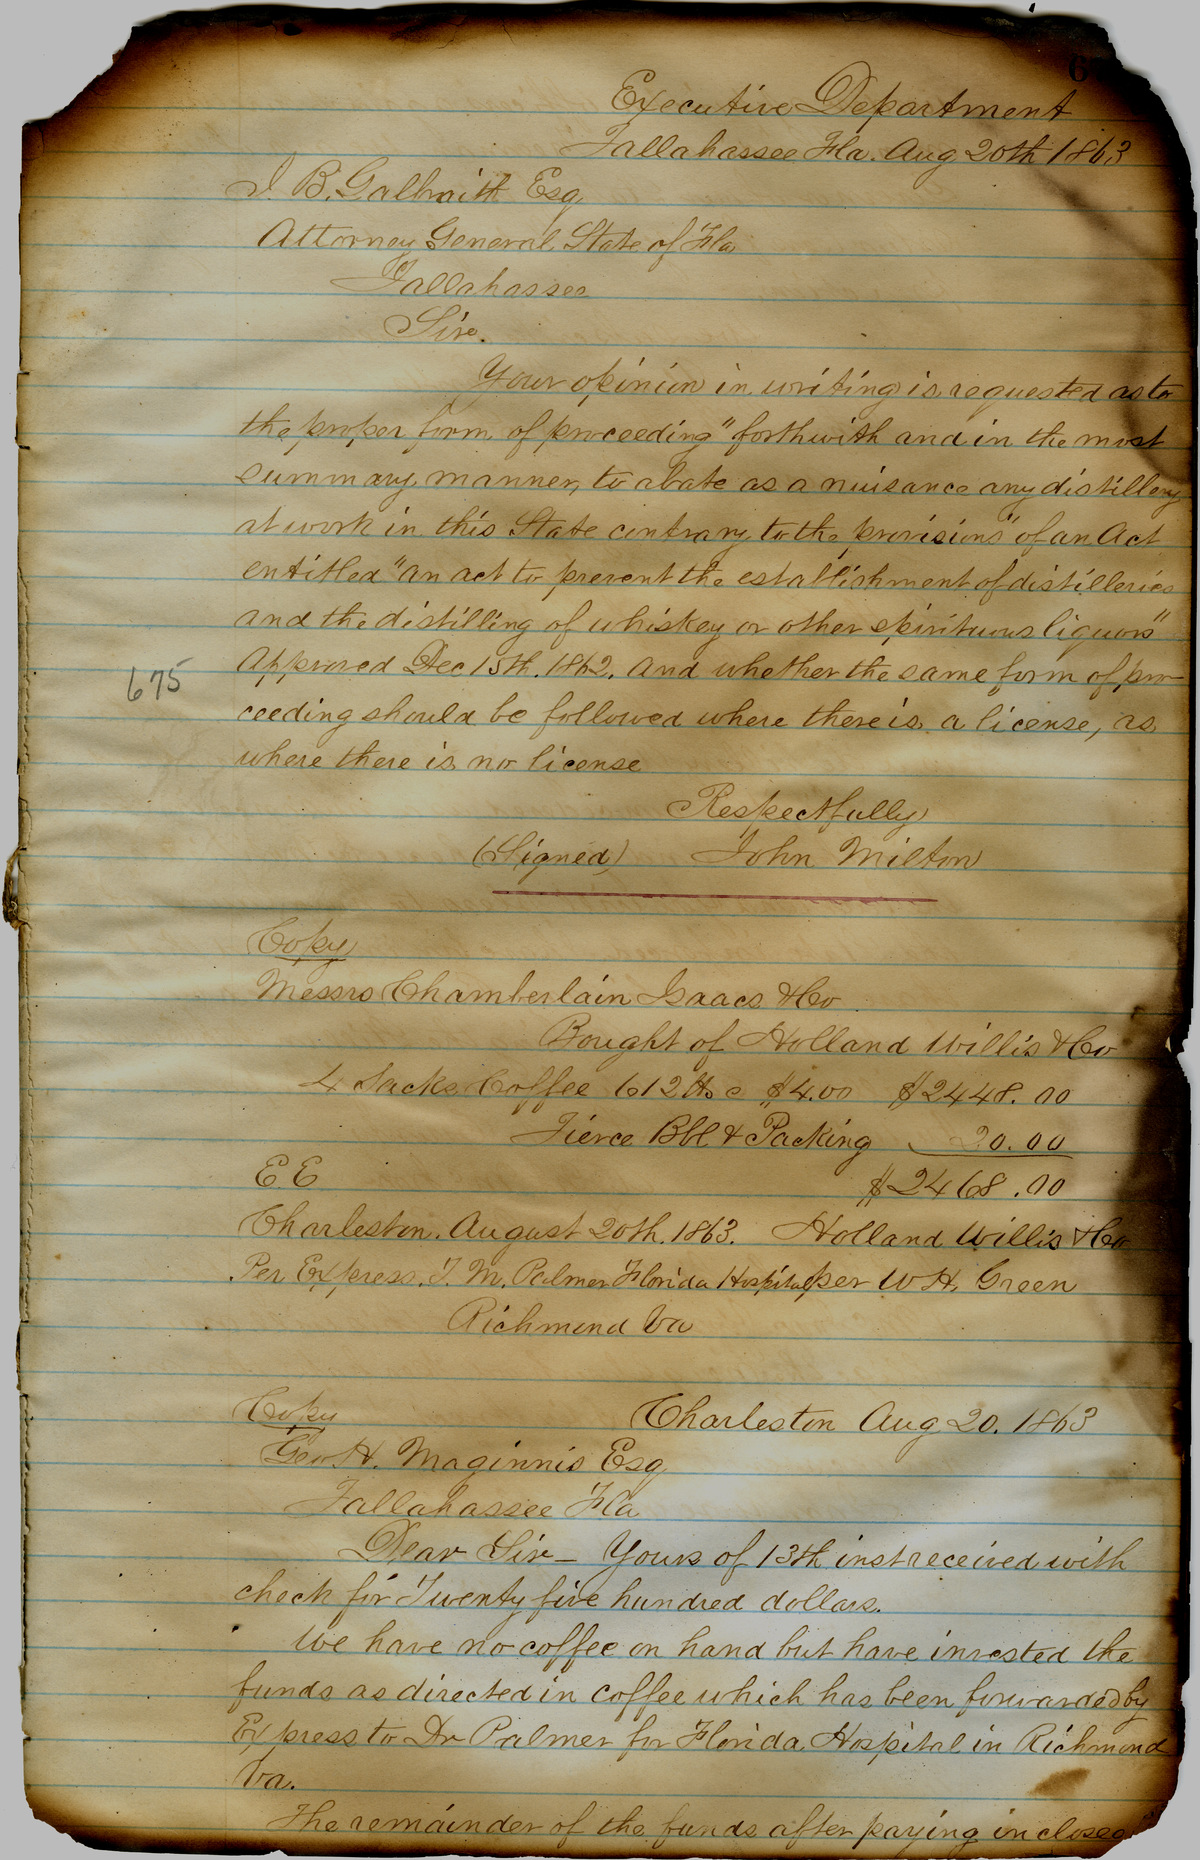 6
Executive Department
Tallahassee Fla. Aug 20th 1863
J. B. Galbraith Esq
Attorney General State of Fla
Tallahassee
Sir.
Your opinion in writing is requested as to
the proper form of proceeding "forthwith and in the most
summary manner, to abate as a nuisance any distillery
at work in this State contrary to the provisions" of an Act
entitled "an act to prevent the establishment of distilleries
and the distilling of whiskey or other spirituous liquors"
Approved Dec 15th. 1862. and whether the same form of pro-
675
ceeding should be followed where there is a license, as
where there is no license
Respectfully
(Signed) John Milton
Copy
Messrs Chamberlain Isaacs & Co
Bought of Holland Willis & Co
4 Sacks Coffee 612 lbs @ $4.00 $2448.00
Tierce Bbl & Packing 20.00
E E $2468.00
Charleston. August 20th. 1863. Holland Willis & Co
Per Express. T. M. Palmer Florida Hospital per W H. Green
Richmond Va
Copy Charleston Aug 20. 1863
Geo H. Maginnis Esq
Tallahassee Fla
Dear Sir – Yours of 13th inst received with
check for Twenty five hundred dollars.
We have no coffee on hand but have invested the
funds as directed in coffee which has been forwarded by
Express to Dr Palmer for Florida Hospital in Richmond
Va.
The remainder of the funds after paying inclosed